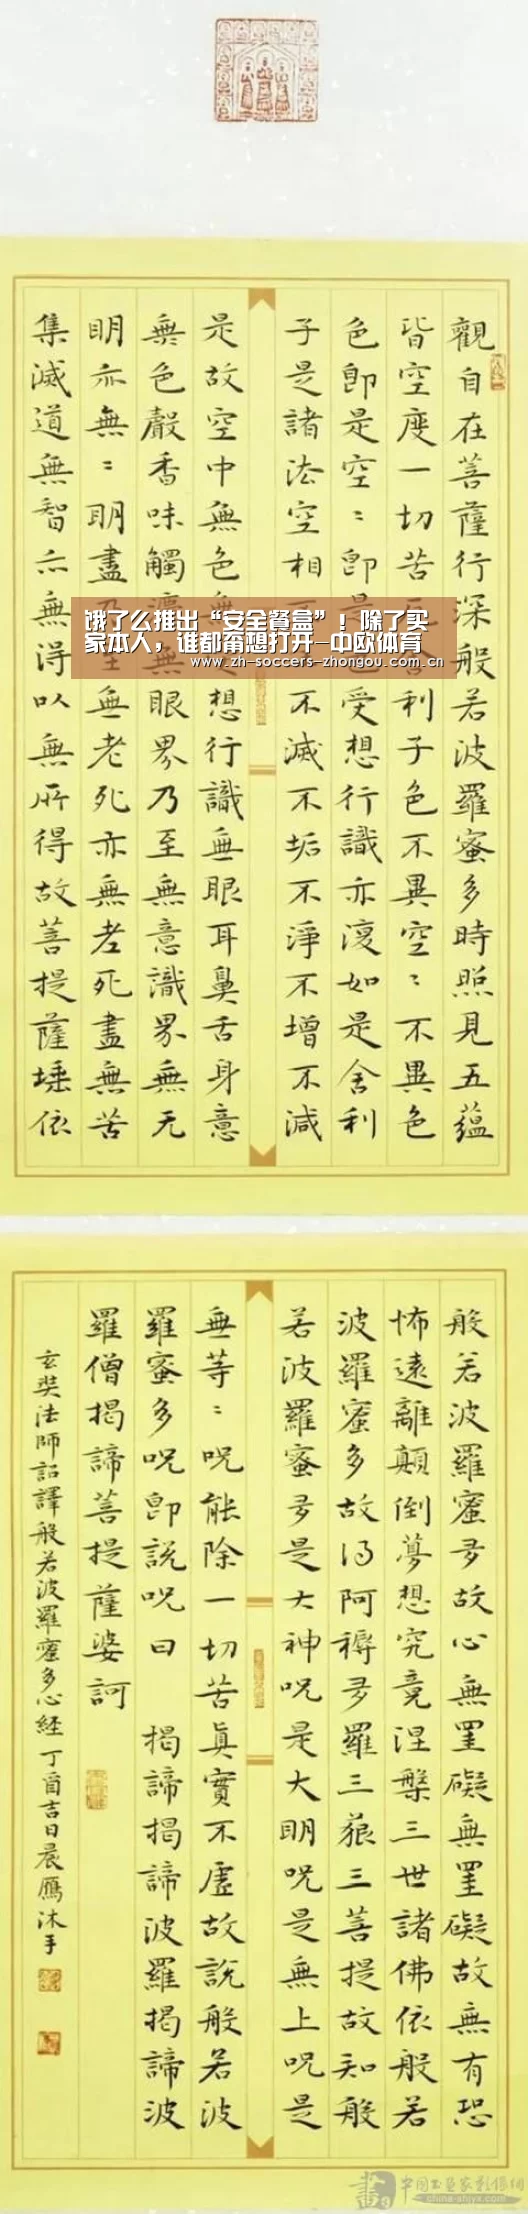 饿了么推出“安全餐盒”！除了买
家本人，谁都甭想打开-中欧体育
www.zh-soccers-zhongou.com.cn
觀自在菩薩行深般若波羅蜜多時照見五蘊
皆空度一切苦利子色不異空〻不異色
色即是空〻即受想行識亦復如是舍利
子是諸法空相不滅不垢不淨不增不減
是故空中無色想行識無眼耳鼻舌身意
無色聲香味觸眼界乃至無意識界無无
明亦無〻明盡無老死亦無老死盡無苦
集滅道無智亦無得以無所得故菩提薩埵依
般若波羅蜜多故心無罣礙無罣礙故無有恐
怖遠離顛倒夢想究竟涅槃三世諸佛依般若
波羅蜜多故得阿耨多羅三藐三菩提故知般
若波羅蜜多是大神呪是大明呪是無上呪是
無等〻呪能除一切苦真實不虛故說般若波
羅蜜多呪即說呪曰 揭諦揭諦波羅揭諦波
羅僧揭諦菩提薩婆訶
玄奘法師詔譯般若波羅蜜多心經丁酉吉日晨雁沐手